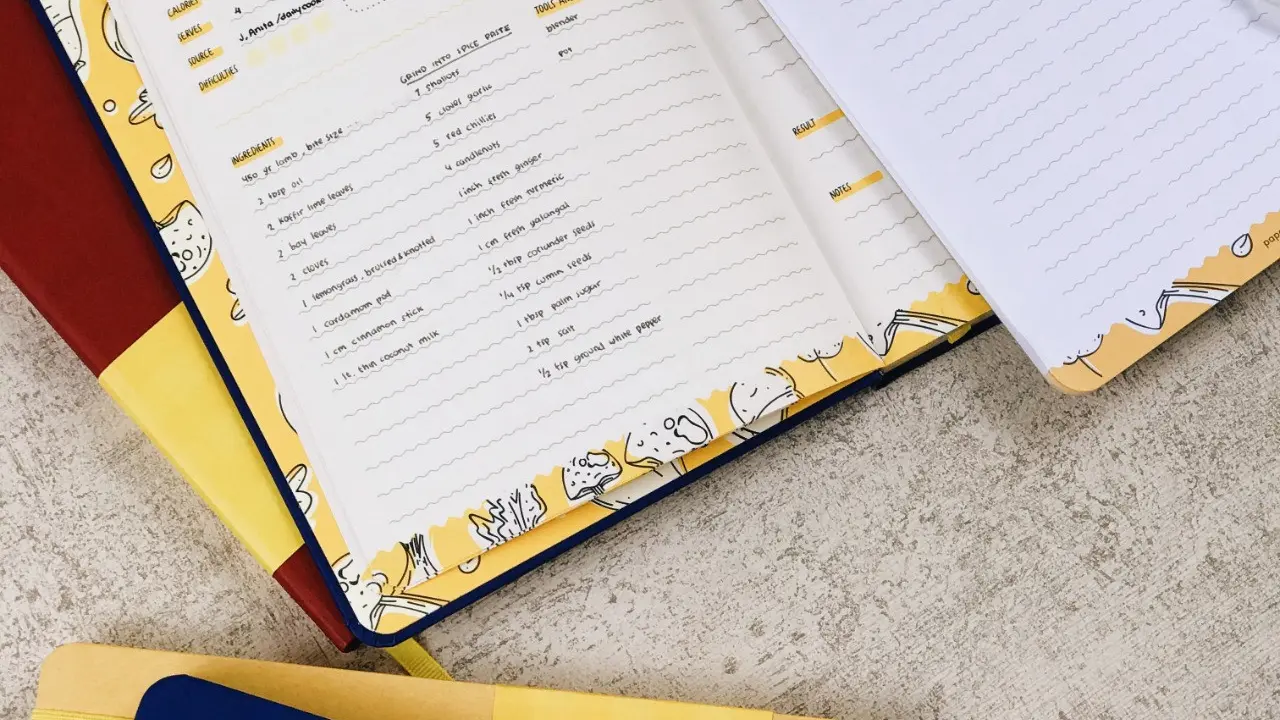 CALORIES
SERVES 4
SOURCE J. Anita / dailycook
DIFFICULTIES
TOOLS
blender
pot
INGREDIENTS
450 gr lamb, bite size
2 tbsp oil
2 kaffir lime leaves
2 bay leaves
2 cloves
1 lemongrass, bruised & knotted
1 cardamom pod
1 cm cinnamon stick
1 lt. thin coconut milk
GRIND INTO SPICE PASTE
7 shallots
5 clover garlic
5 red chillies
4 candlenuts
1 inch fresh ginger
1 inch fresh turmeric
1 cm fresh galangal
1/2 tbsp coriander seeds
1/4 tsp cumin seeds
1 tbsp palm sugar
2 tsp salt
1/2 tsp ground white pepper
RESULT
NOTES